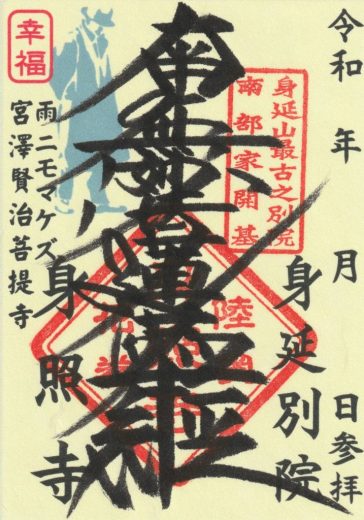 令和 年 月 日参拝
身延別院
身延山最古之別院
南部家開基
南無妙法蓮華経
幸福
雨ニモマケズ
宮澤賢治菩提寺
身照寺